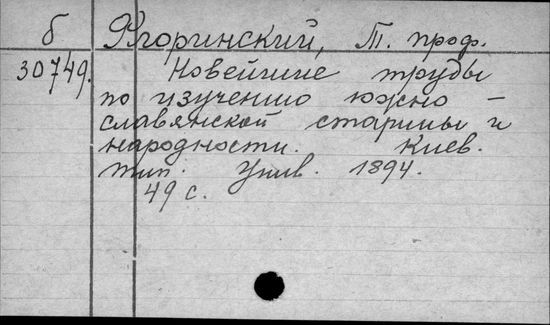 б Флоринский, Т. проф.
30749. Новейшие труды
по изучению южно –
славянской старины и
народности. Киев.
тип. Унив. 1894.
49 с.